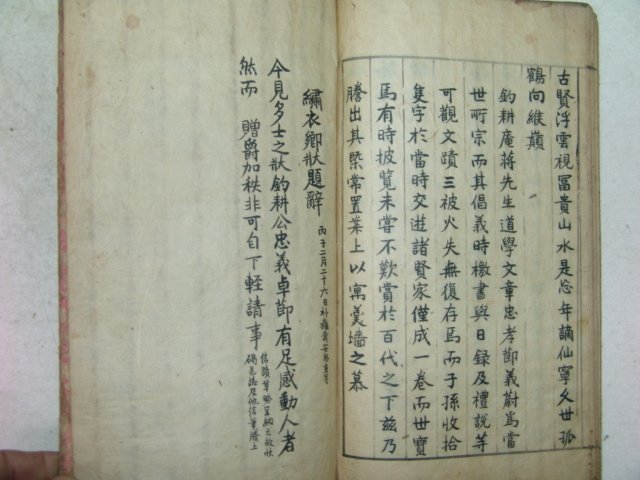 古賢浮雲視冨貴山水是忘年謫仙寧久世孤
鶴向緱巔
釣耕庵蔣先生道學文章忠孝節義蔚爲當
世所宗而其倡義時檄書與日録及禮說等
可觀文蹟三被火失無復存焉而子孫收拾
隻字於當時交遊諸賢家僅成一卷而世寶
焉有時披覽未嘗不歎賞於百代之下玆乃
謄出其槩常置案上以寓羹墻之慕
繡衣御狀題辭
丙子二月二十六日
今見多士之狀釣耕公忠義卓節有足感動人者
然而 贈爵加秩非可自下輕請事